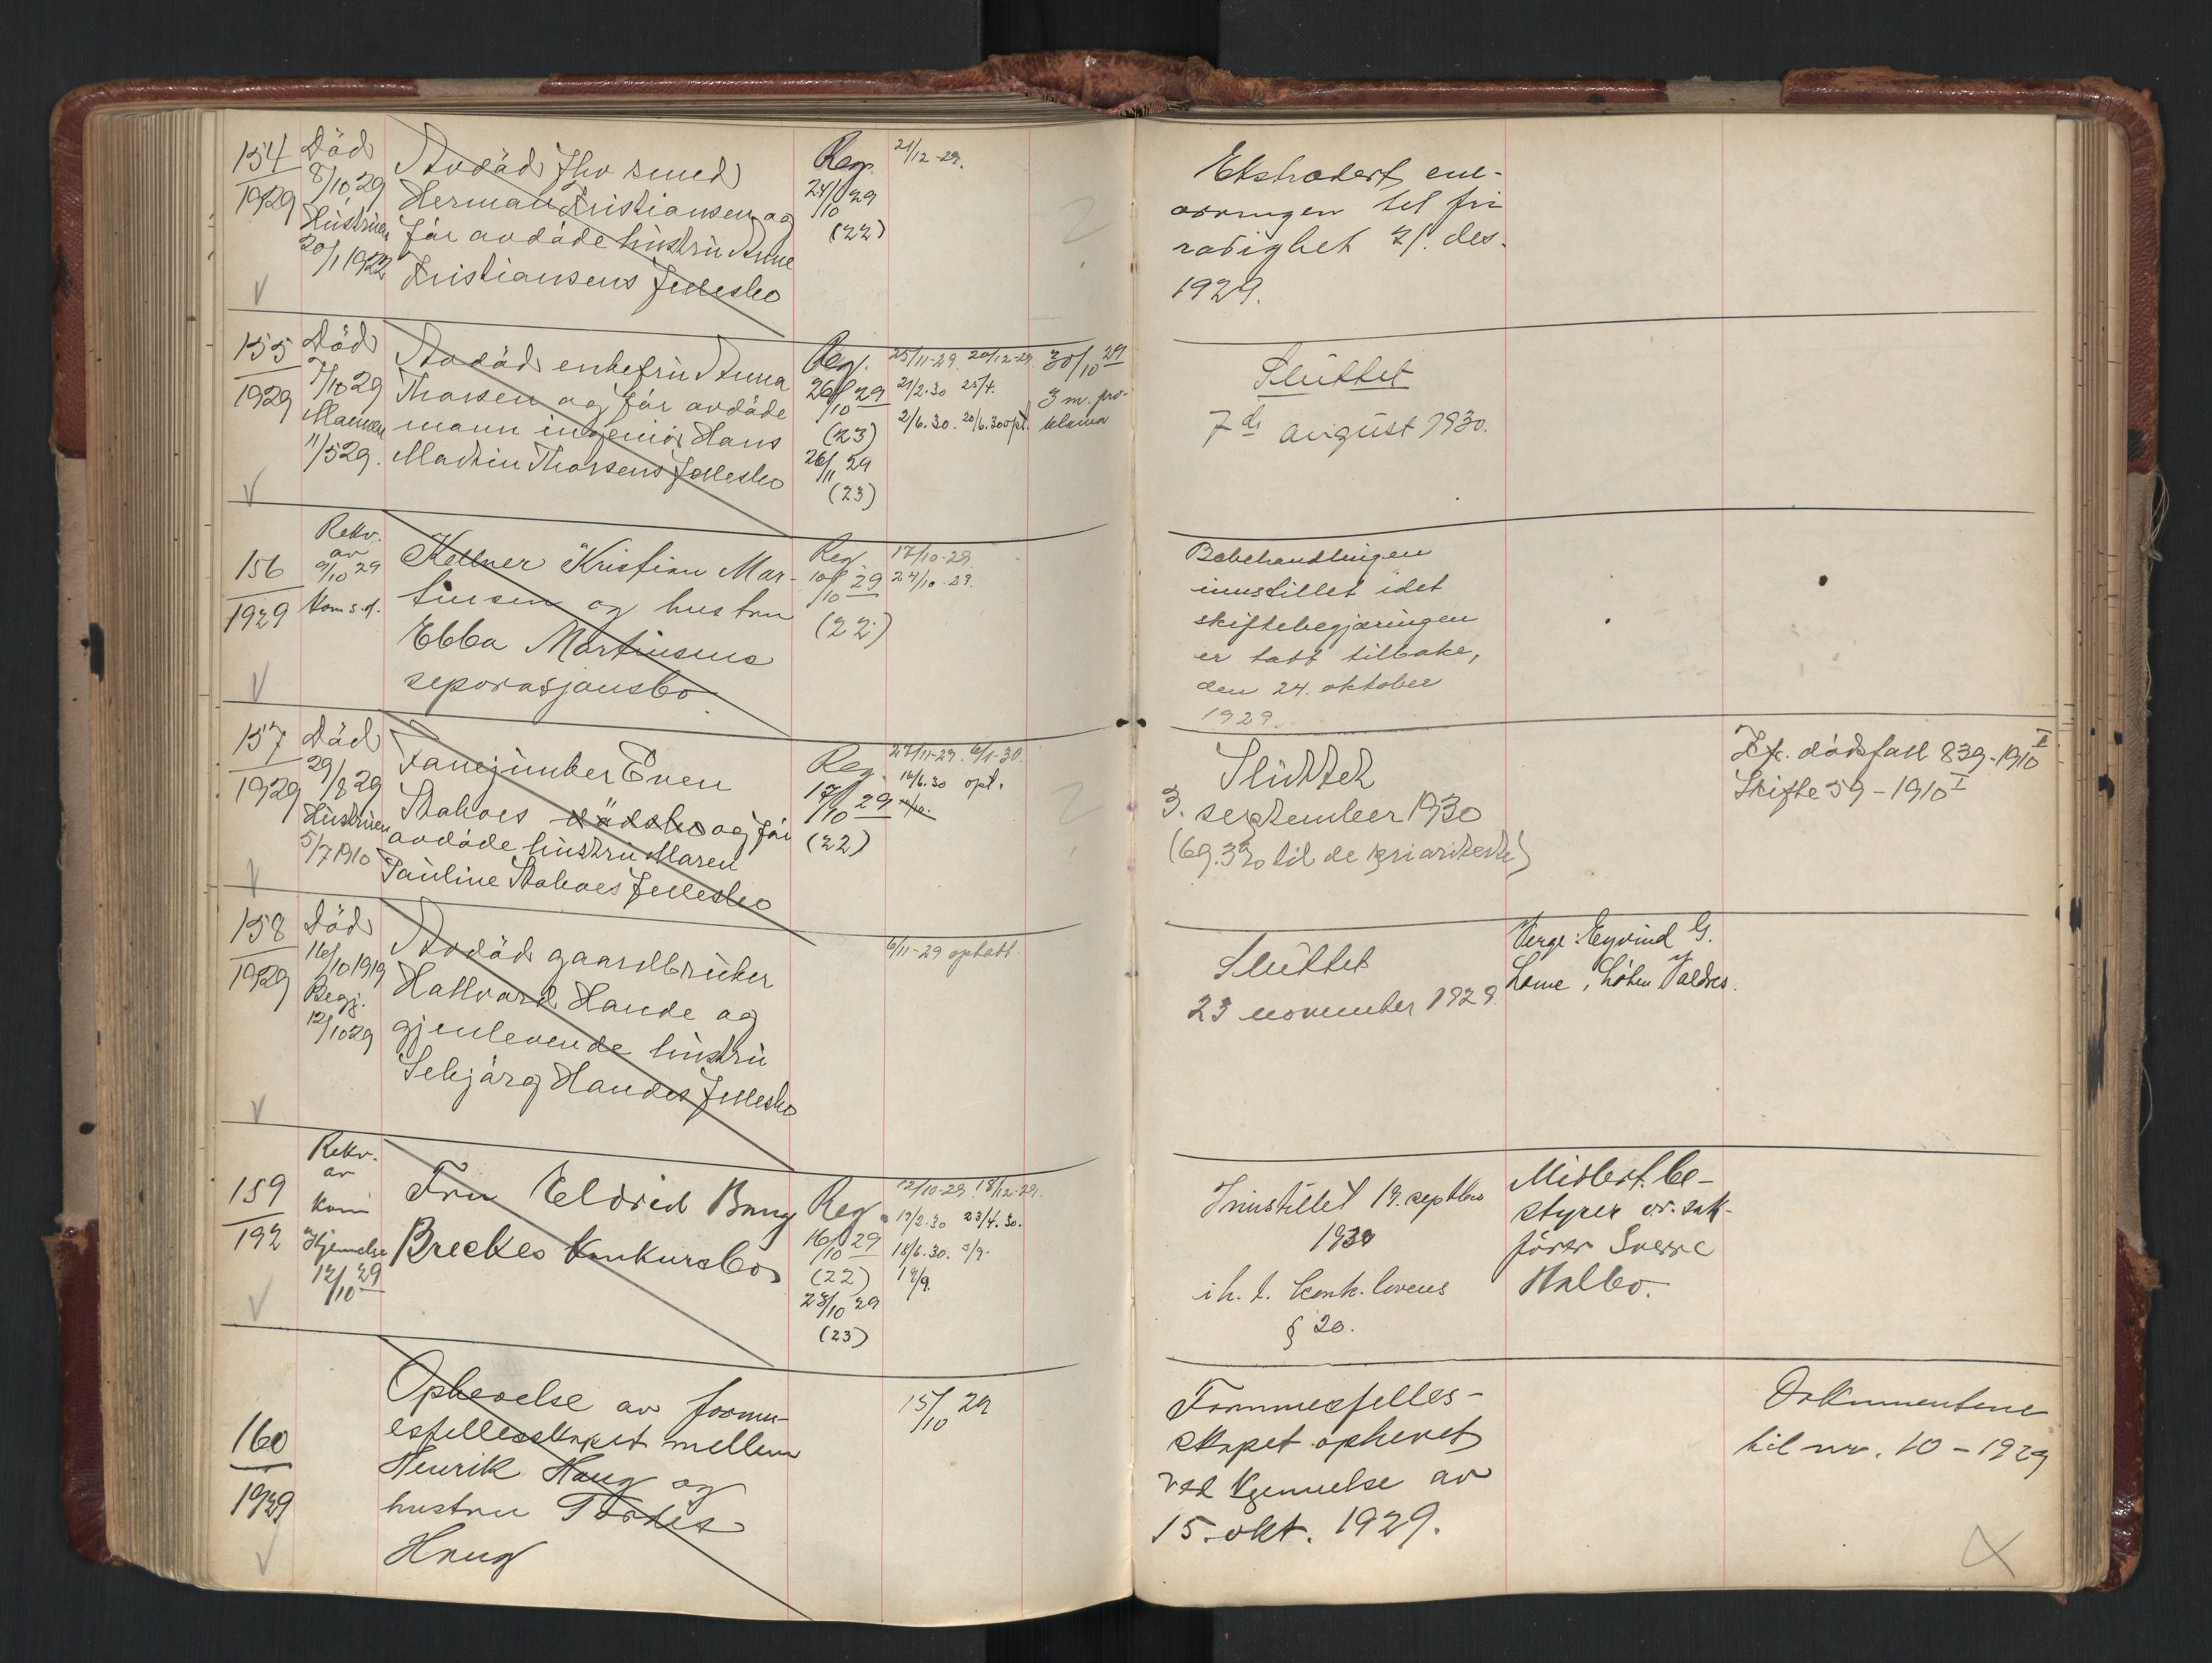 154
1929
Död
8/10 29
Hustruen
20/1 1922
Avdöd
Herman Kristiansen og
før avdöde hustru Anne
Kristiansens fellesbo
Reg.
24/10 29
(22)
21/12-29.
enke-
til fri
rådighet 21. des.
1929.
155
1929
Död
7/10 29
Mannen
11/5 29.
Avdöd enkefru Anna
Thorsen og før avdöde
mann ingeniör Hans
Martin Thorsens fellesbo
Reg.
26/10 29
(23)
26/11 29
(23)
25/11-29. 20/12-29.
21/2.30 25/4.
2/6.30. 20/6.30 opt.
30/10 29
3 m. pro-
klama
Sluttet
7de august 1930.
156
1929
Rekv.
av
9/10 29
Kom s.d.
Kellner Kristian Mar-
tinsen og hustru
Ebba Martinsens
separasjonsbo.
Reg.
10/10 29
(22)
17/10-29.
24/10-29.
Bobehandlingen
innstillet idet
skiftebegjæringen
er tatt tilbake,
den 24. oktober
1929.
157
1929
Död
29/8 29
Hustruen
5/7 1910
Fanejunker Even
og før
avdöde hustru Maren
Pauline fellesbo
Reg.
17/10 29
(22)
27/11-29. 6/1-30.
16/6.30 opt.
Sluttet
3. september 1930
(69.3% til de prioriterte)
dødsfall 839-1910 I
Skifte 59-1910 I
158
1929
Död
16/10 1919
Begj.
12/10 29
Avdöd gaardbruker
Hallvard Hande og
gjenlevende hustru
Handes fellesbo
6/11-29 optatt.
Sluttet
23 november 1929.
Verge: Eyvind G.
Lome, Lohn Valdres.
159
192
Rekv.
av
Kom
Kjennelse
12/10 29
Fru Eldrid Bang
Breckes konkursbo
Reg.
16/10 29
(22)
28/10 29
(23)
12/10-29. 18/12-29.
19/2.30 23/4.30.
18/6.30. 3/9.
19/9.
Innstillet 19. septbr
1930
i h. t. konk. lovens
§ 20.
Midlert. be-
styrer o.r. sak-
förer Sverre
Halbo.
160
1929
Ophevelse av formu-
esfellesskapet mellem
Henrik Haug og
hustru Tordis
Haug
15/10 29
Formuesfelles-
skapet ophevet
ved kjennelse av
15. okt. 1929.
Dokumentene
til nr. 10-1929